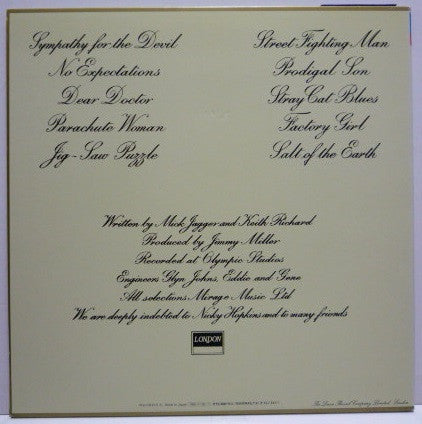 Sympathy for the Devil
No Expectations
Dear Doctor
Parachute Woman
Jig-Saw Puzzle
Street Fighting Man
Prodigal Son
Stray Cat Blues
Factory Girl
Salt of the Earth
Written by Mick Jagger and Keith Richard
Produced by Jimmy Miller
Recorded at Olympic Studios
Engineers Glyn Johns, Eddie and Gene
All selections Mirage Music Ltd
We are deeply indebted to Nicky Hopkins and to many friends
LONDON
The Decca Record Company Limited, London